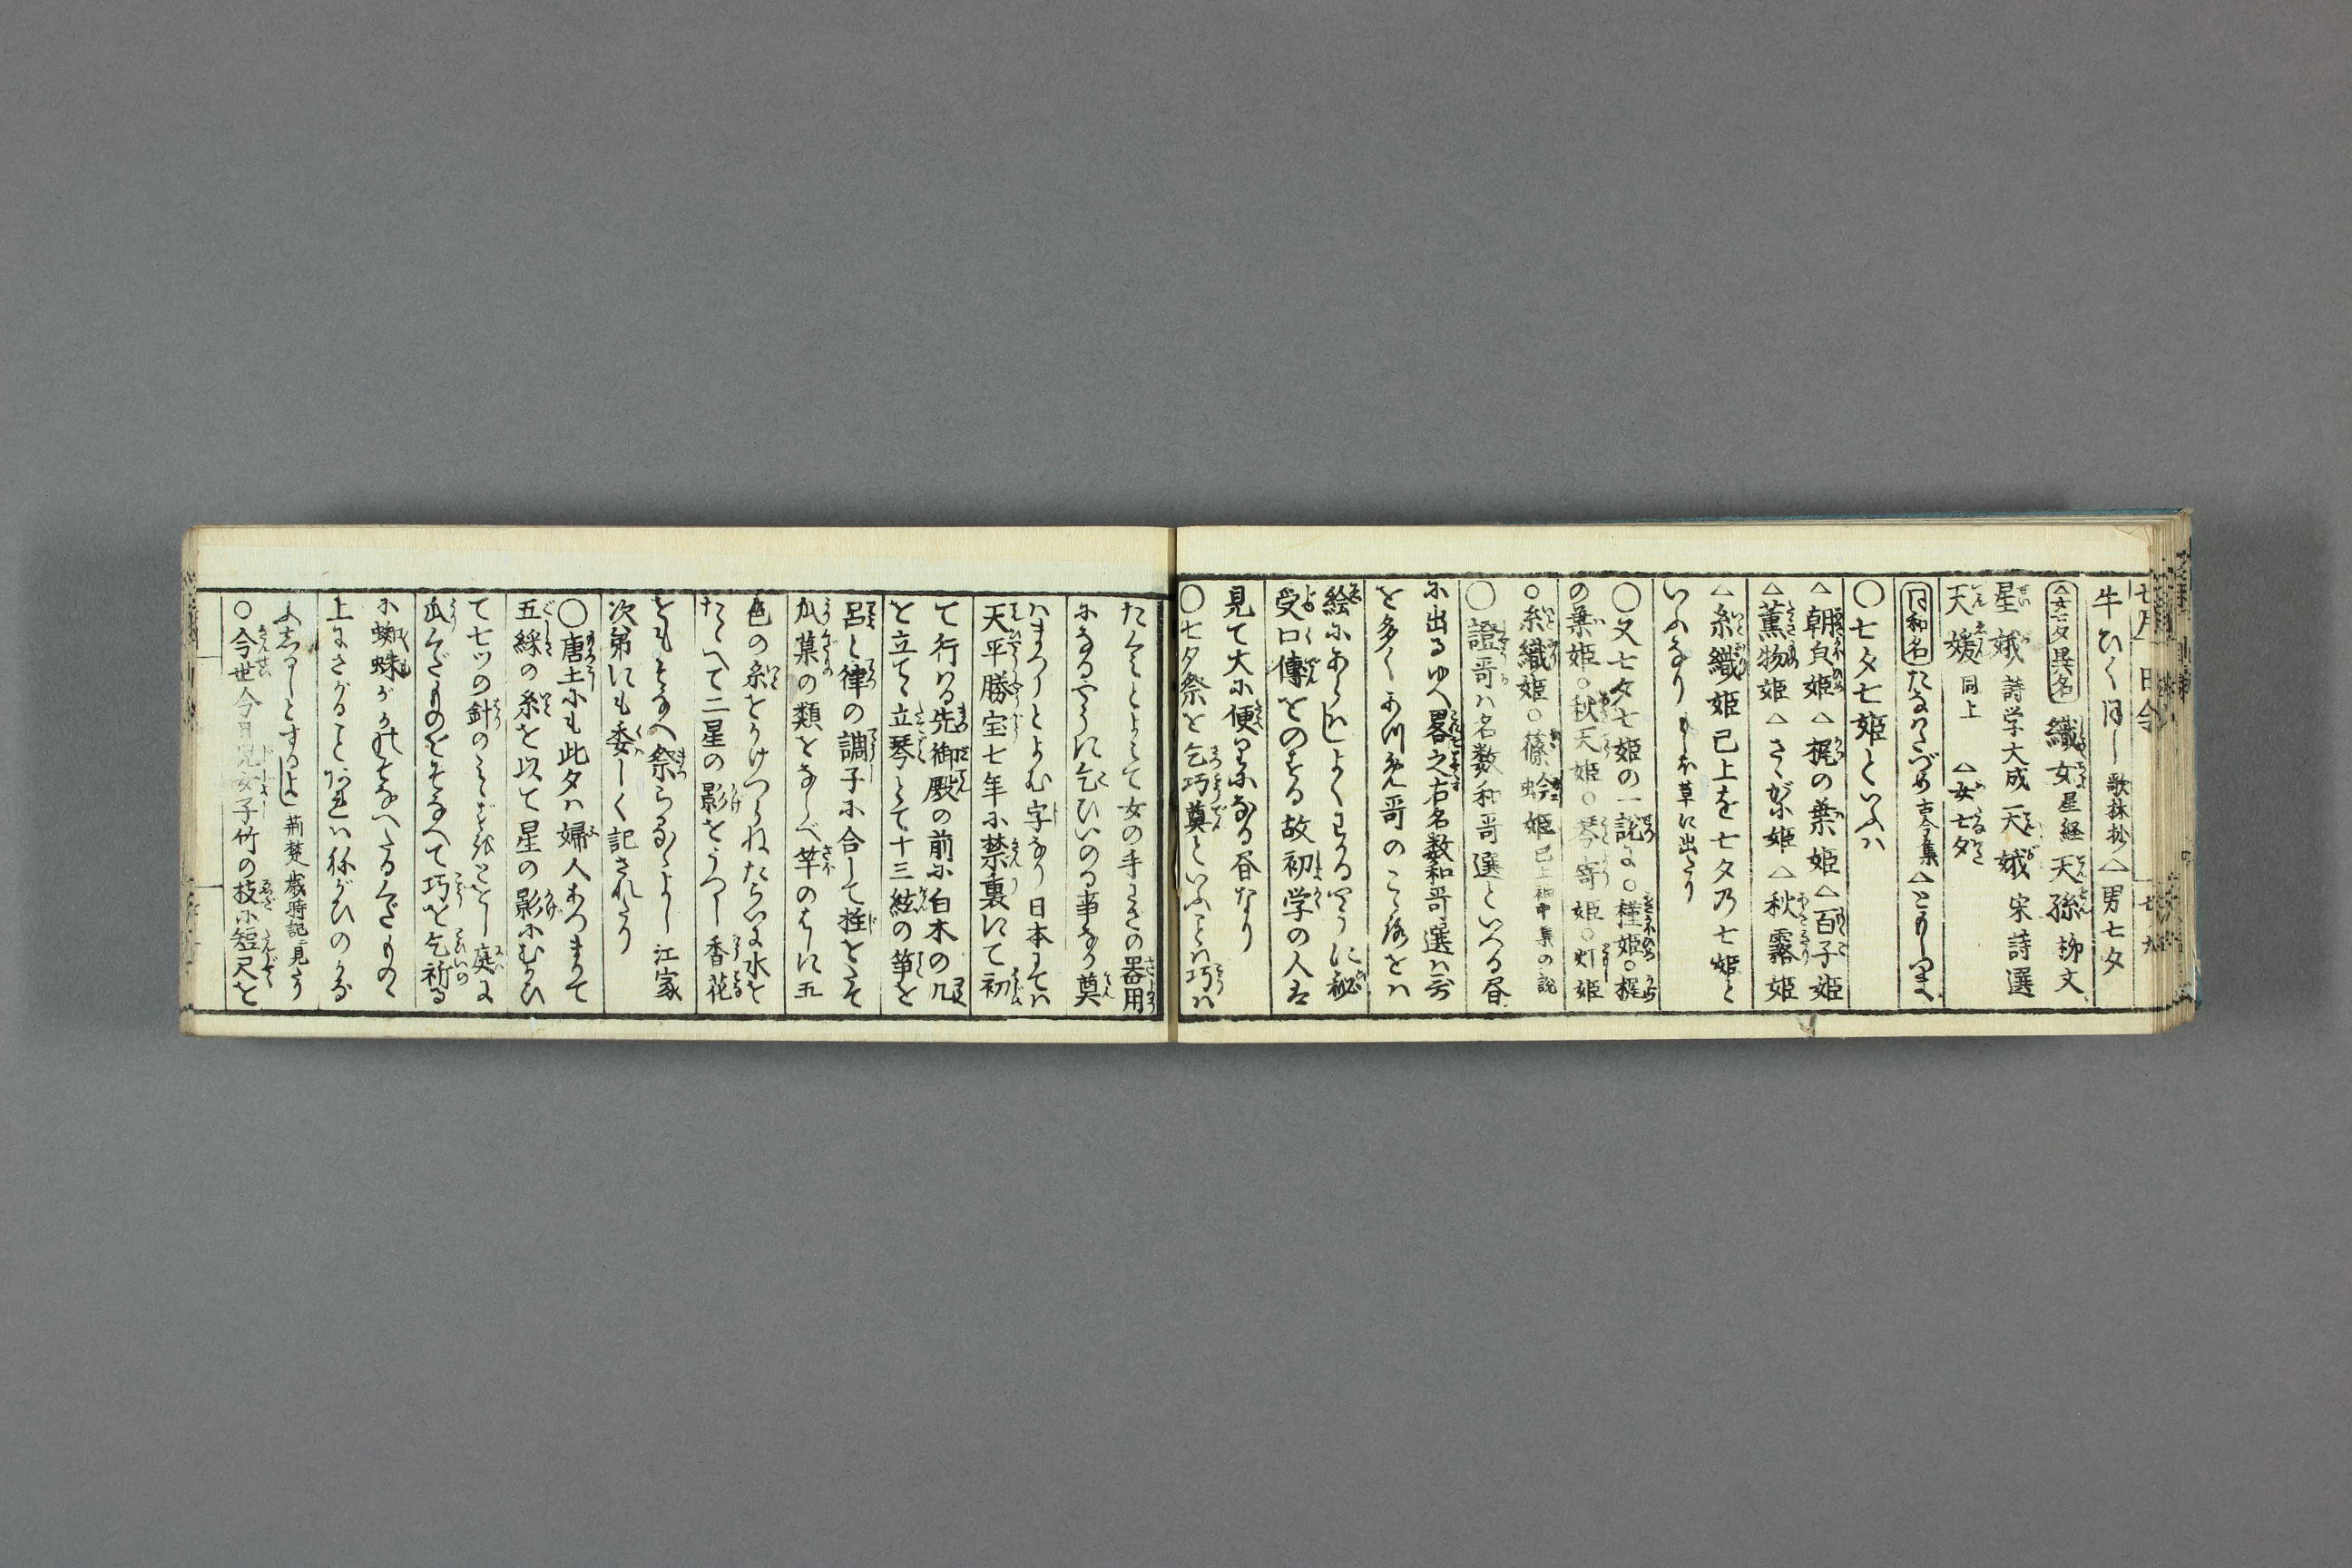 七月　日令　七ノ九
牛ひく同し 歌林抄 △男七夕
△女七夕異名 織女 星経 天孫 柳文
星娥 詩学大成 天娥 宋詩選
天媛 同上 △女七夕
同和名 たなはたづめ 古今集 △ともしつま
○七夕七姫といふハ
△朝皃姫△梶の葉姫△百子姫
△薫物姫△さゝがに姫△秋霧姫
△糸織姫 已上を七夕乃七姫と
いふなり もしほ草に出たり
○又七夕七姫の一説に○槿姫○梶
の葉姫○秋天姫○琴寄姫○灯姫
○糸織姫○篠蛉姫 已上袖中集の説
○證哥ハ名数和哥選といへる昼
に出るゆへ畧之右名数和哥選ハ哥
を多くあつめ哥のこゝろをハ
絵にあらハしよくわかるやうに秘
受口傳をのする故初学の人は
見て大に便りになる昼なり
○七夕祭を乞巧奠といふことハ巧ハ
たくミとよミて女の手わざの器用
になるやうに乞ひいのる事なり奠
ハまつりとよむ字なり日本にてハ
天平勝宝七年に禁裏にて初
て行ハる先御殿の前に白木の几
を立てゝ立琴とて十三絃の箏を
呂と律の調子に合して柱をたて
瓜菓の類をならべ竿のはしに五
色の糸をかけつらねたらいに水を
たゝへて二星の影をうつし香花
をもそなへ祭らるゝよし 江家
次第にも委しく記されたり
○唐土にも此夕ハ婦人あつまりて
五綵の糸を以て星の影にむかひ
て七ツの針のミゝをとをし庭に
瓜くだものをそなへて巧を乞祈る
に蜘蛛がかのそなへたるくだものゝ
上にさがることあれハ祢がひのかな
ふしるしとするよし 荊楚歳時記ニ見たり
○今世今日児女子竹の枝に短尺を